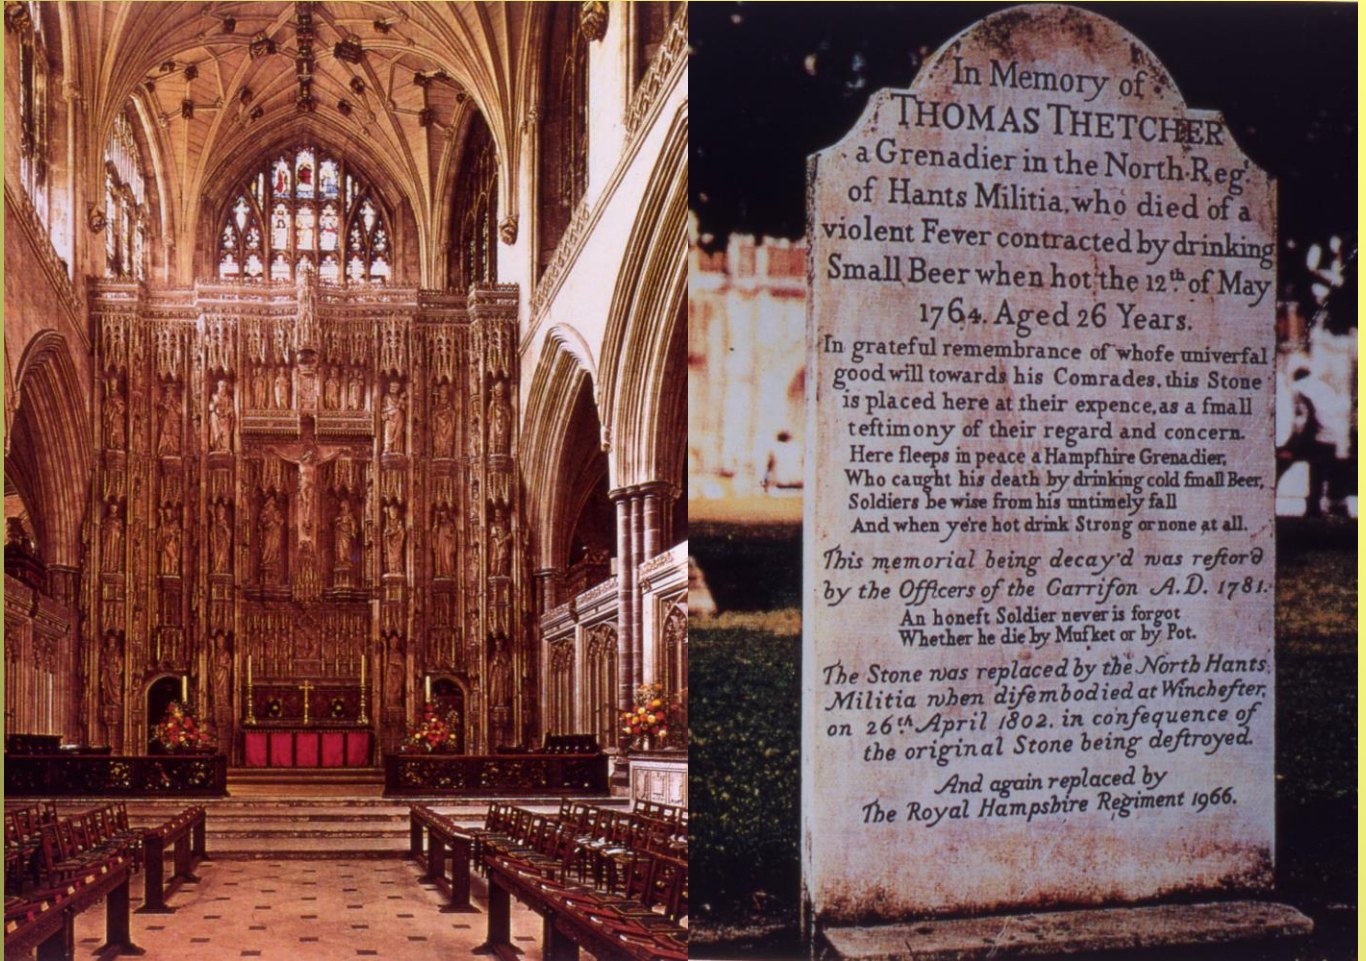 In Memory of
THOMAS THETCHER
a Grenadier in the North Reg.
of Hants Militia, who died of a
violent Fever contracted by drinking
Small Beer when hot the 12th of May
1764. Aged 26 Years.
In grateful remembrance of whofe univerfal
good will towards his Comrades, this Stone
is placed here at their expence, as a fmall
teftimony of their regard and concern.
Here fleeps in peace a Hampfhire Grenadier,
Who caught his death by drinking cold fmall Beer,
Soldiers be wise from his untimely fall
And when ye're hot drink Strong or none at all.
This memorial being decay'd was reftor'd
by the Officers of the Garrifon A.D. 1781.
An honeft Soldier never is forgot
Whether he die by Mufket or by Pot.
The Stone was replaced by the North Hants
Militia when difembodied at Winchefter,
on 26th April 1802. in confequence of
the original Stone being deftroyed.
And again replaced by
The Royal Hampshire Regiment 1966.